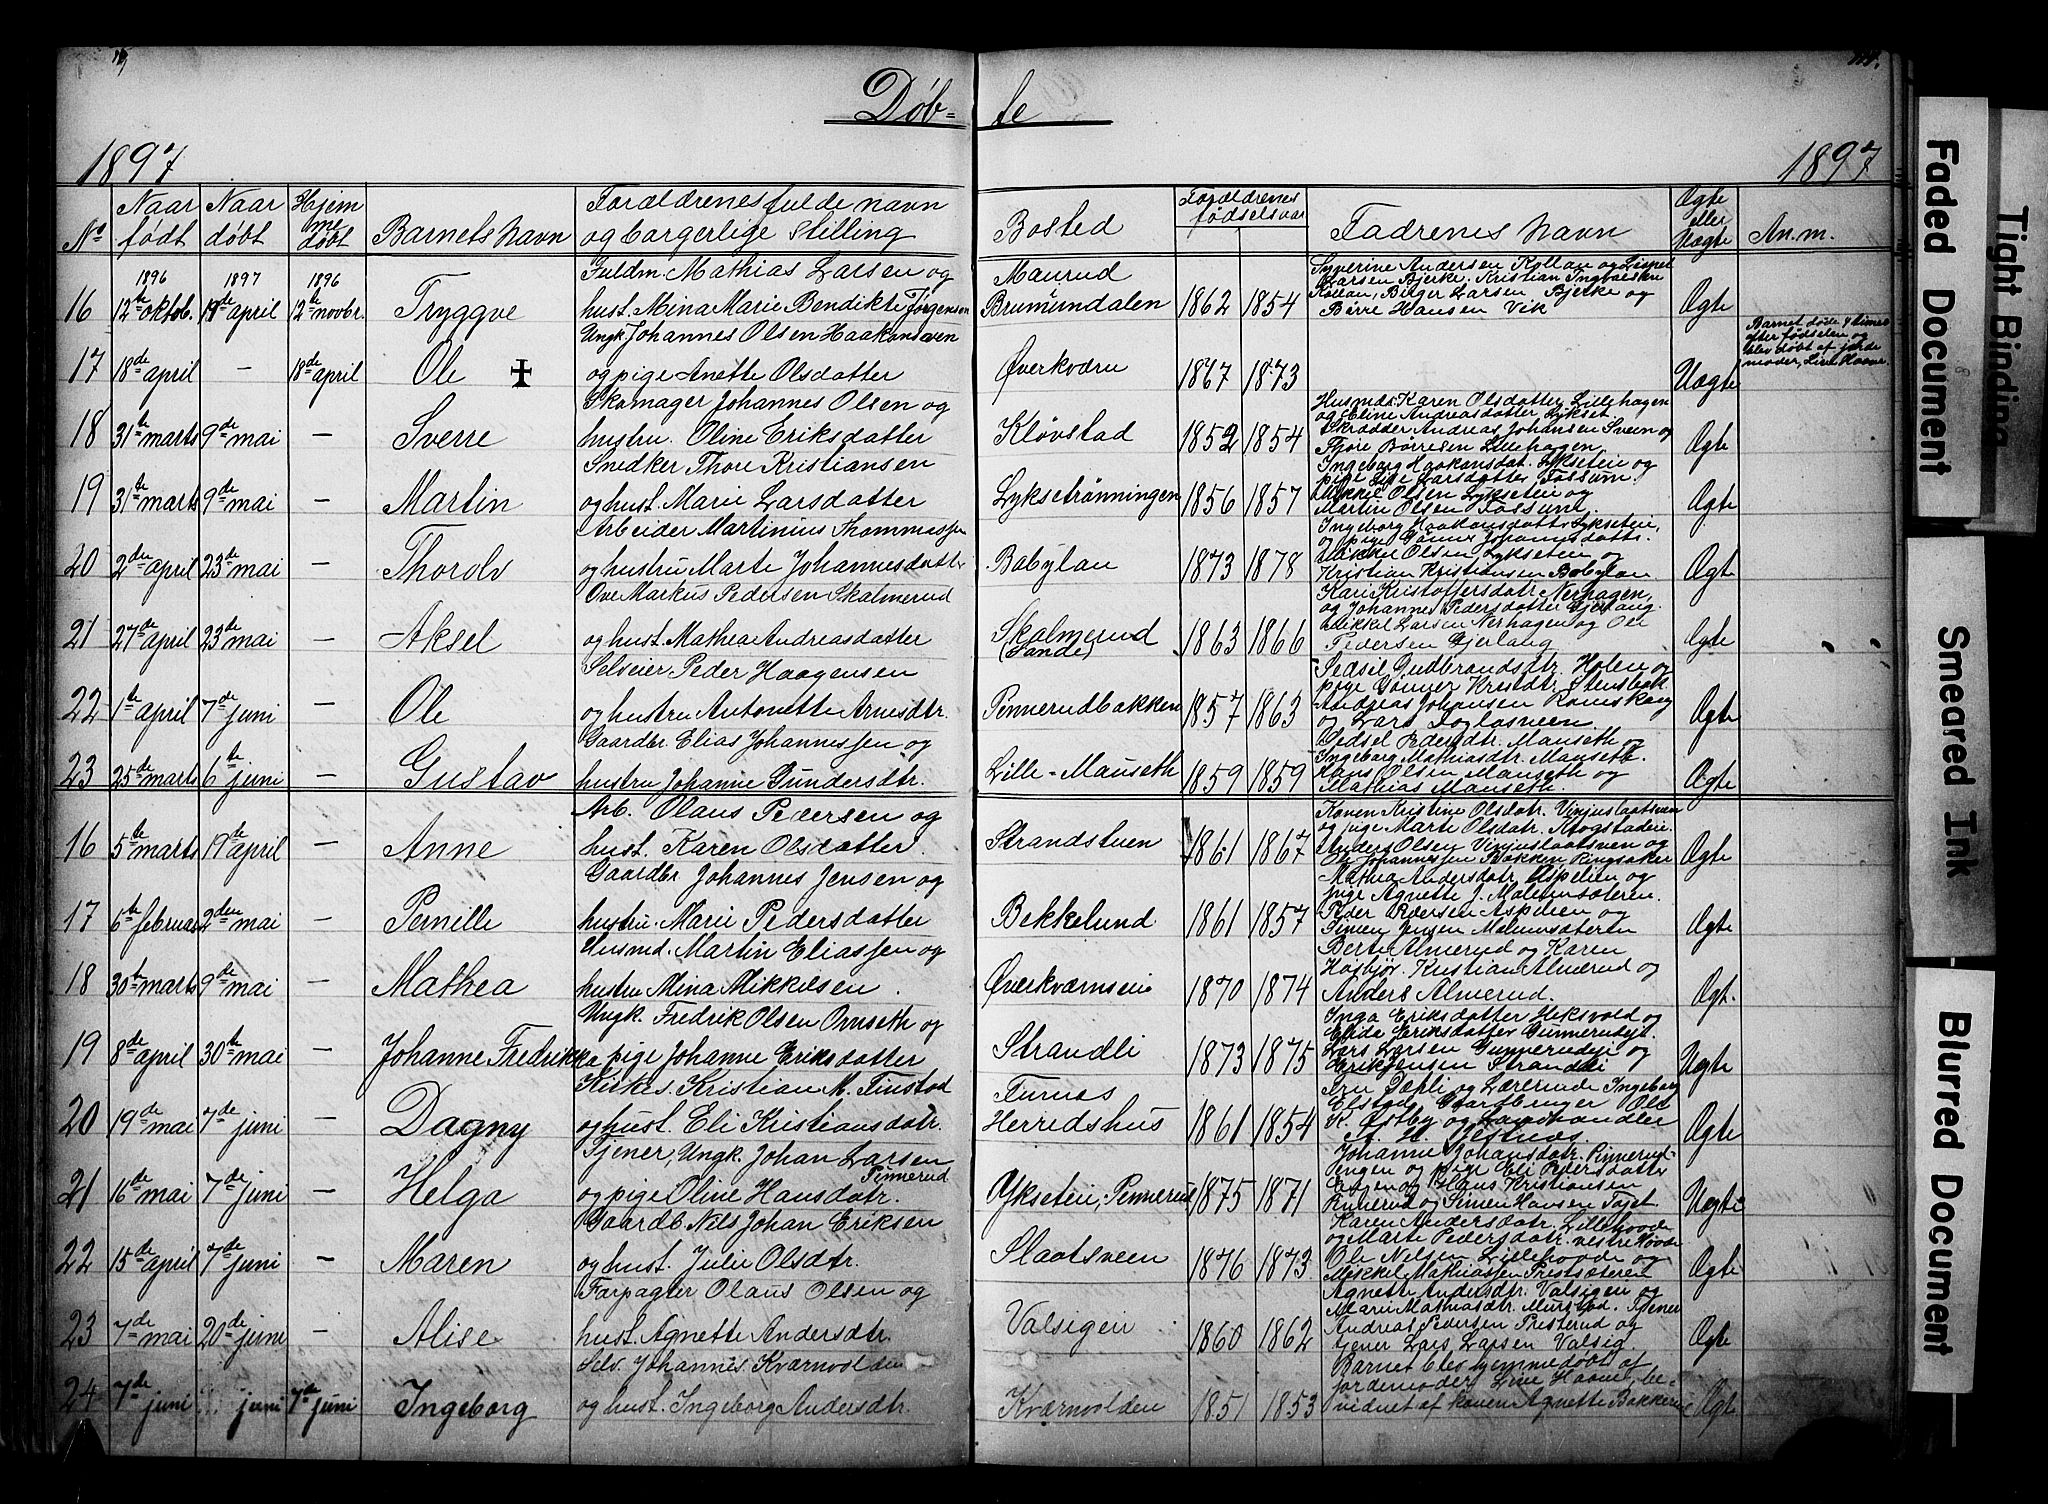 Døb- te
1897 1897
No Naar født Naar døbt Hjemmedøbt Barnets navn Forældrenes fulde navn og borgerlige stilling Bosted Forældrenes fødselsaar Fadrenes navn Ægte eller Uægte An.m.
1896 1897 1896
16 12te oktob. 19de april 12te novbr. Tryggve Fuldm. Mathias Larsen og
hust. Mina Marie Bendikte Jørgensen Maurud Brumunddalen 1862 1854 Børre Hansen Vik Ægte
17 18de april – 18de april Ole ✝ Ungk. Johannes Olsen Haakonsveen
og pige Anette Olsdatter Øverkværn 1867 1873 Uægte Barnet døde 4 timer efter fødselen og blev døbt af jordemoder, Line Haave
18 31te marts 9de mai – Sverre Skomager Johannes Olsen og
hustru Oline Eriksdatter Kløvstad 1852 1854 Husmds. Karen Olsdatter Lillehagen
og Eline Andreasdatter Lykset
Skrædder Andreas Johansen Sveen og
Thore Børresen Lillehagen Ægte
19 31te marts 9de mai – Martin Snedker Thore Kristiansen
og hust. Marie Larsdatter Lyksetrønningen 1856 1857 Ingeborg Haakonsdat. Lykseteie og
pige Lise Larsdatter Fossum.
Mikkel Olsen Lykseteie og
Martin Olsen Fossum. Ægte
20 2den april 23de mai – Thorolv Arbeider Martinius Thommassen
og hustru Marte Johannesdatter Babylan 1873 1878 Ingeborg Haakonsdatter Lykseteie,
og pige Gunner Johannesdattr.
Mikkel Olsen Lykseteie og
Kristian Kristiansen Babylan. Ægte
21 27de april 23de mai – Aksel Ove Markus Pedersen Skalmerud
og hust. Mathea Andreasdatter Skalmerud (Sande) 1863 1866 Kari Kristoffersdatr Nerhagen,
og Johannes Pedersdatter Gjerlang.
Mikkel Larsen Nerhagen og Ole
Pedersen Gjerlang Ægte
22 1te april 7de juni – Ole Selveier Peder Haagensen
og hustru Antonette Arnesdtr. Pennerudbakken 1857 1863 Sedsil Gudbrandsdtr. Holen og
pige Gunner Krstdtr. Stensbak.
Andreas Johansen Ramskog
og Lars Loglosveen Ægte
23 25de marts 6te juni – Gustav Gaardbr. Elias Johannessen og
hustru Johanne Gundersdtr. Lille-Mauseth 1859 1859 Sedsel Pedersdtr. Mauseth og
Ingeborg Mathiasdtr. Mauseth.
Hans Olsen Mauseth og
Mathias Mauseth. Ægte
16 5te marts 19de april Anne Arb. Olaus Pedersen og
hust. Karen Olsdatter Strandstuen 1861 1867 Konen Kristine Olsdatr. Vinjuslaatsveen
og pige Marte Olsdatr. Stogstadeie.
Anders Olsen Vinjuslaatsveen og
Ole Johannessen Bakken Ringsaker Ægte
17 6te februar 2den mai – Pernille Gaardbr Johannes Jensen og
hustru Marie Pedersdatter Bekkelund 1861 1857 Mathea Andersdatr. Aspelien og
pige Agnette J. Malumsæteren.
Peder Pedersen Aspelien og
Simen Jensen Malumsæteren Ægte
18 30te marts 9de mai – Mathea Husmd. Martin Eliassen og
hustru Mina Mikkelsen. Øverkværnseie 1870 1874 Berte Almerud og Karen
Hosbjør. Kristian Almerud og
Anders Almerud. Ægt.
19 8de april 30te mai – Johanne Fredrikke Ungk. Fredrik Olsen Ovnseth og
pige Johanne Eriksdatter Strandli 1873 1875 Inga Eriksdatter Heksvold og
Elida Eriksdatter Gunnerudejt.
Lars Larsen Gunnerudeje og
Erik Jensen Strandli Uægte
20 19de mai 7de juni – Dagny Kirkes. Kristian M. Finstad
og hust. Eli Kristiansdatr. Furnes Herredshus 1861 1854 Fru Dæhli og Lærerinde Ingeborg
Elstad. Gaardbruger Ole
K. Østby og Landhandler
A. H. Jestnæs. Ægte
21 16de mai 7de juni – Helga Tjener, Ungk. Johan Larsen
Pinnerud
og pige Oline Hansdatr. Økseteie, Pennerud 1875 1871 Johanne Johansdatr. Pinnerud-
engen og pige Eli Pedersdatter
Engen og Hans Kristiansen
Pinnerud og Simen Hansen Toset Uægte
22 15de april 7de juni – Maren Gaardb. Nils Johan Eriksen
og hust. Julie Olsdtr. Slaatsveen 1876 1873 Karen Andersdatr. Lillehovde
og Marte Pedersdatr. vestre Hovde
Ole Nelsen Lillehovde og
Mikkel Mathiassen Prestsæteren Ægte
23 7de mai 20de juni – Alise Forpagter Olaus Olsen og
hust. Agnette Andersdtr. Valsigen 1860 1862 Agnette Andersdtr. Valsigen og
Marie Mathiasdtr. Murstad. Tjener
Andreas Pedersen Presterud og
tjener Lars Larsen Valsig. Ægte
24 7de juni juni 7de juni Ingeborg Selv. Johannes Kværnvolden
og hust. Ingeborg Andersdtr. Kværnvolden 1851 1853 Barnet blev hjemmedøbt af
jordemoder, Line Haave, be-
vidnet af konen Agnette Bakken Ægte
Faded Document
Tight Binding
Smeared Ink
Blurred Document